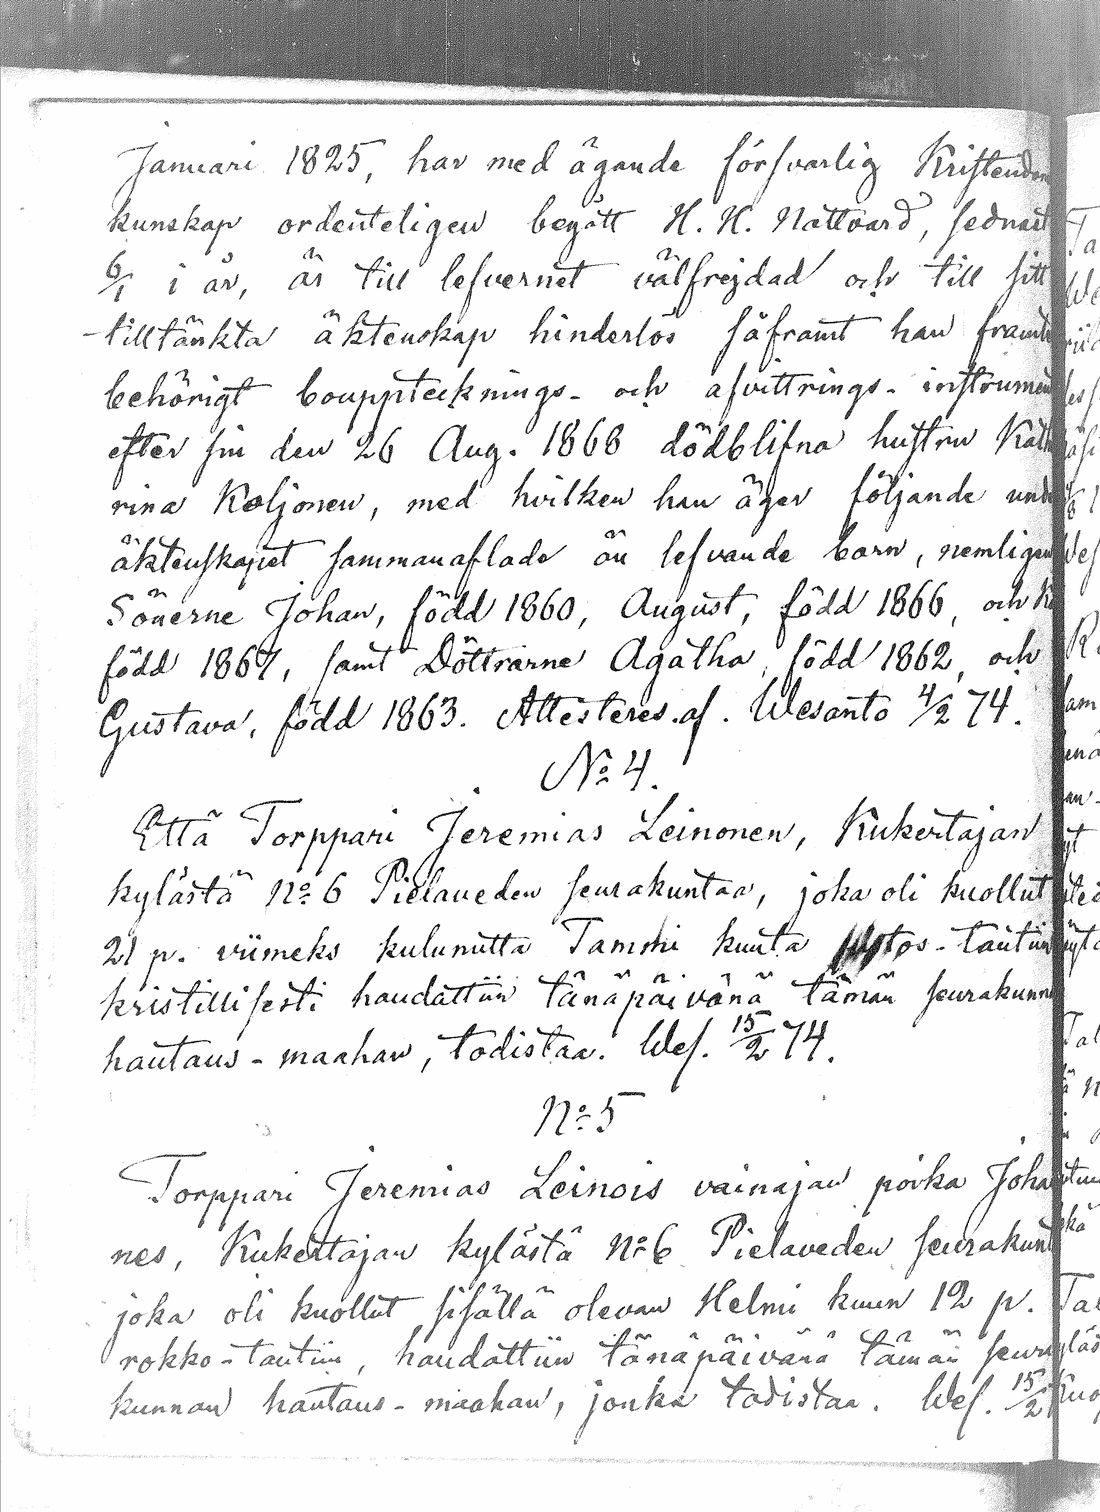 Januari 1825, har med ägande försvarlig Kristendom
kunskap ordenteligen begått H. H. Nattvard, sednast
6/1 i år, är till lefvernet välfrejdad och till sitt
tilltänkta äktenskap hinderlös såframt han framte
behörigt boupptecknings- och afvittrings-instrument
efter sin den 26 Aug. 1868 dödblifna hustru Kath
rina Koljonen, med hvilken han äger följande unde
äktenskapet sammanaflade än lefvande barn, nemligen
Sönerne Johan, född 1860, August, född 1866, och
född 1867, samt Döttrarne Agatha, född 1862, och
Gustava, född 1863. Attesteras af. Wesanto 4/2 74.
No 4.
Että Torppari Jeremias Leinonen, Kukertajan
kylästä No 6 Pielaveden seurakuntaa, joka oli kuollut
21 p. viimeks kulunutta Tammi kuuta -tautiin
kristillisesti haudattiin tänäpäivänä tämän seurakunna
hautaus-maahan, todistaa. Wes. 15/2 74.
No 5
Torppari Jeremias Leinois vainajan poika Joha
nes, Kukertajan kylästä No 6 Pielaveden seurakunt
joka oli kuollut sisällä olevan Helmi kuun 12 p.
rokko-tautiin, haudattiin tänäpäivänä tämän seura
kunnan hautaus-maahan, jonka todistaa. Wes. 15/2